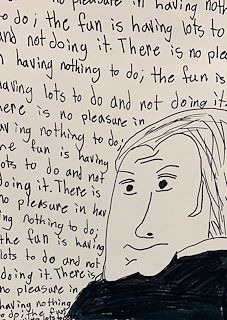 no pleasure in having noth
to do; the fun is having lots to
and not doing it. There is no ple
n having nothing to do; the fun is
having lots to do and not doing it.
here is no pleasure in
aving nothing to do;
he fun is having
lots to do and not
doing it. There is
no pleasure in hav
ing nothing to do;
the fun is having
lots to do and not
doing it. There is
no pleasure in
having nothing
to do; the fun